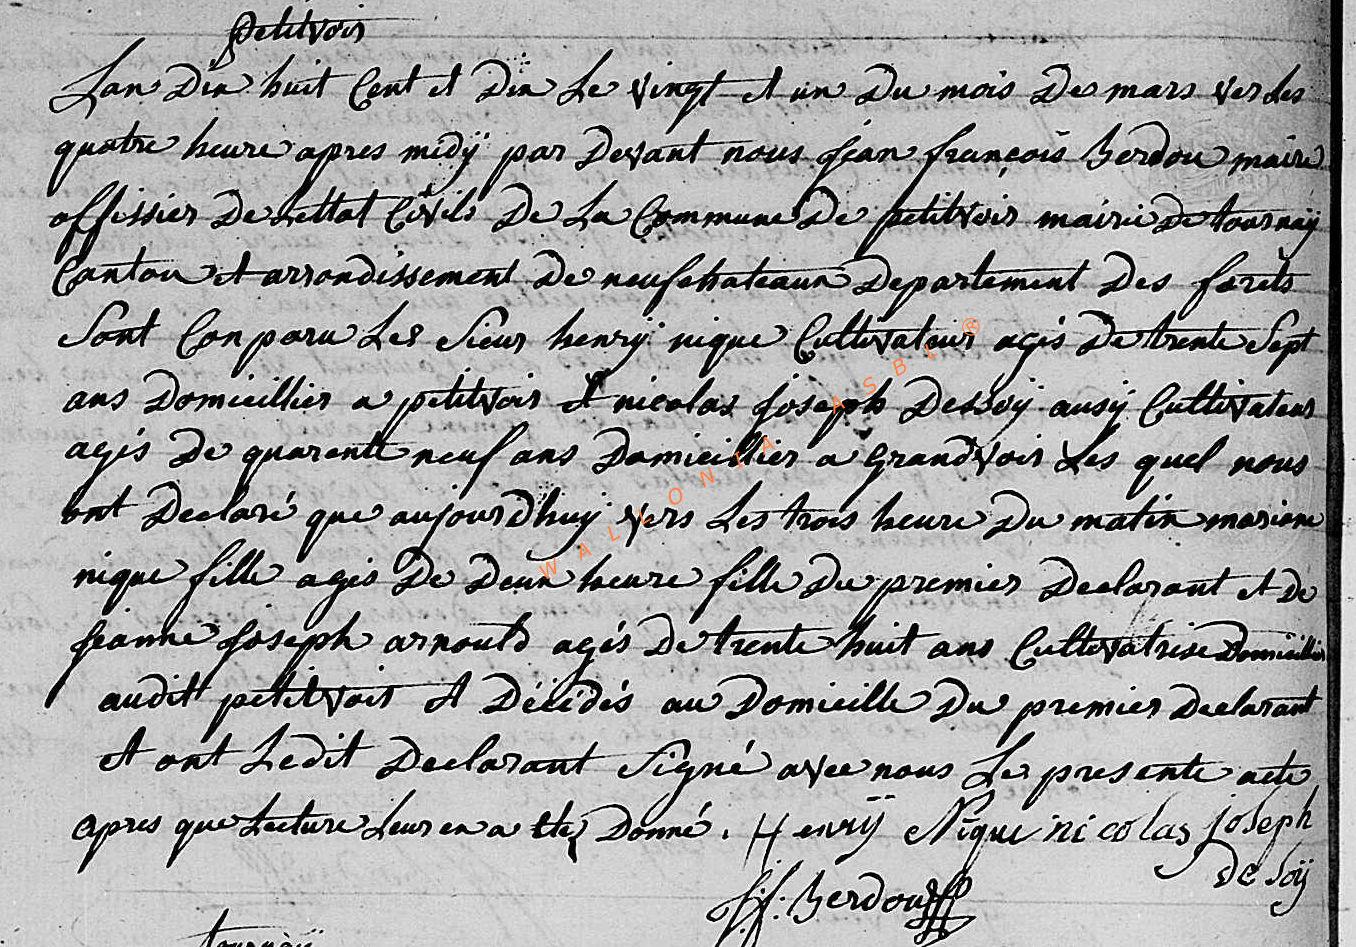 petitvoir
Lan Dix huit Cent et Dix Le vingt et un Du mois De mars vers Les
quatre heure apres midÿ par Devant nous jean françois Berdou maire
offissier De Lettat Civile De La Commune De petitvoir mairie De tournaÿ
Canton et arrondissement De neufchateaux Departement Des forèts
Sont Conparu Les Sieur henrÿ nique Cultivateur agés De trente Sept
ans Domicillier a petitvoir Et nicolas joseph Dessoÿ ausÿ Cultivateur
agés De quarente neuf ans Domicillier a Grandvoir Les quel nous
ont Declaré que aujourDhuÿ vers Les trois heure Du matin mariane
nique fille agés De Deux heure fille Du premier Declarant et De
jeanne joseph arnould agés De trente huit ans Cultivatrice Domicillier
audit petitvoir Et Décédés au Domicille Du premier Declarant
Et ont Ledit Declarant Signé avec nous Le presente acte
apres que Lecture Leur en a Ete Donné. Henrÿ Nique nicolas joseph
De Soÿ
j.f. Berdou
tournaÿ
WALLONIA ASBL ®